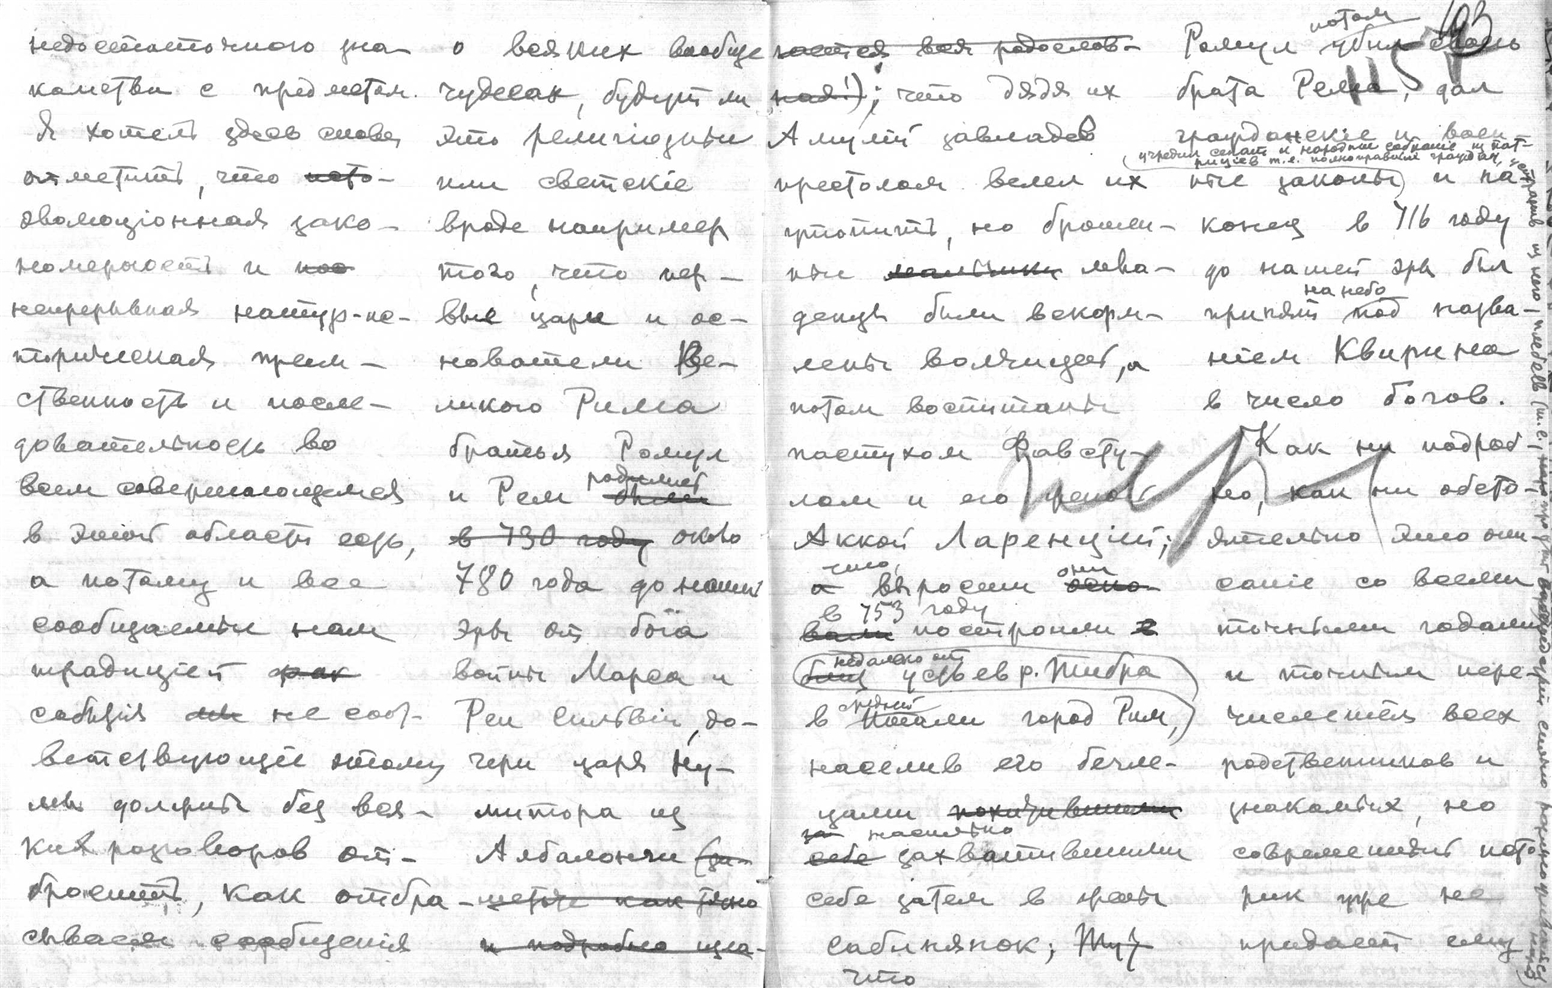 недостаточного зна-
комства с предметом.
Я хотел здесь снова
отметить, что
эволюционная зако-
номерность и
непрерывная натур-ис-
торическая преем-
ственность и после-
довательность во
всем совершающемся
в этой области есть,
а потому и все
сообщаемые нам
традицией
события не соот-
ветствующие этому
мы должны без вся-
ких разговоров от-
бросить, как отбра-
сываем сообщения
о всяких вообще
чудесах, будут ли
это религиозные
или светскіе
вроде например
того, что пер-
вые цари и ос-
нователи Ве-
ликого Рима
братья Ромул
и Рем родились
в 730 году около
780 года до нашей
эры от бога
войны Марса и
Реи Сильвіи, до-
чери царя Ну-
митора из
Албалонги (
как ясно
и подробно изла-
гается вся родослов-
ная!); что дядя их
Амулій завладев
престолом велел их
утопить, но брошен-
ные мальчики мла-
денцы были вскорм-
лены волчицей, а
потом воспитаны
пастухом Фавсту-
лом и его женой
Аккой Ларенціей;
что, выросши они
в 753 году
построили
недалеко от
устьев р. Тибра
в Италии город Рим,)
населив его бегле-
цами
насильно
себе захватившими
себе затем в жены
сабинянок;
что
потом
Ромул убил свого
брата Рема, дал
гражданскіе и воен-
(учредил сенат и народныя собранія из пат-
рициев т.е. полноправных граждан,
ные законы) и на-
конец в 716 году
до нашей эры был
на небо
принят под назва-
ніем Квирина
в число богов.
Как ни подроб-
но, как ни обсто-
ятельно это опи-
саніе со всеми
точными годами
и точным пере-
числением всех
родственников и
знакомых, но
современный исто-
рик уже не
придает ему
193
115